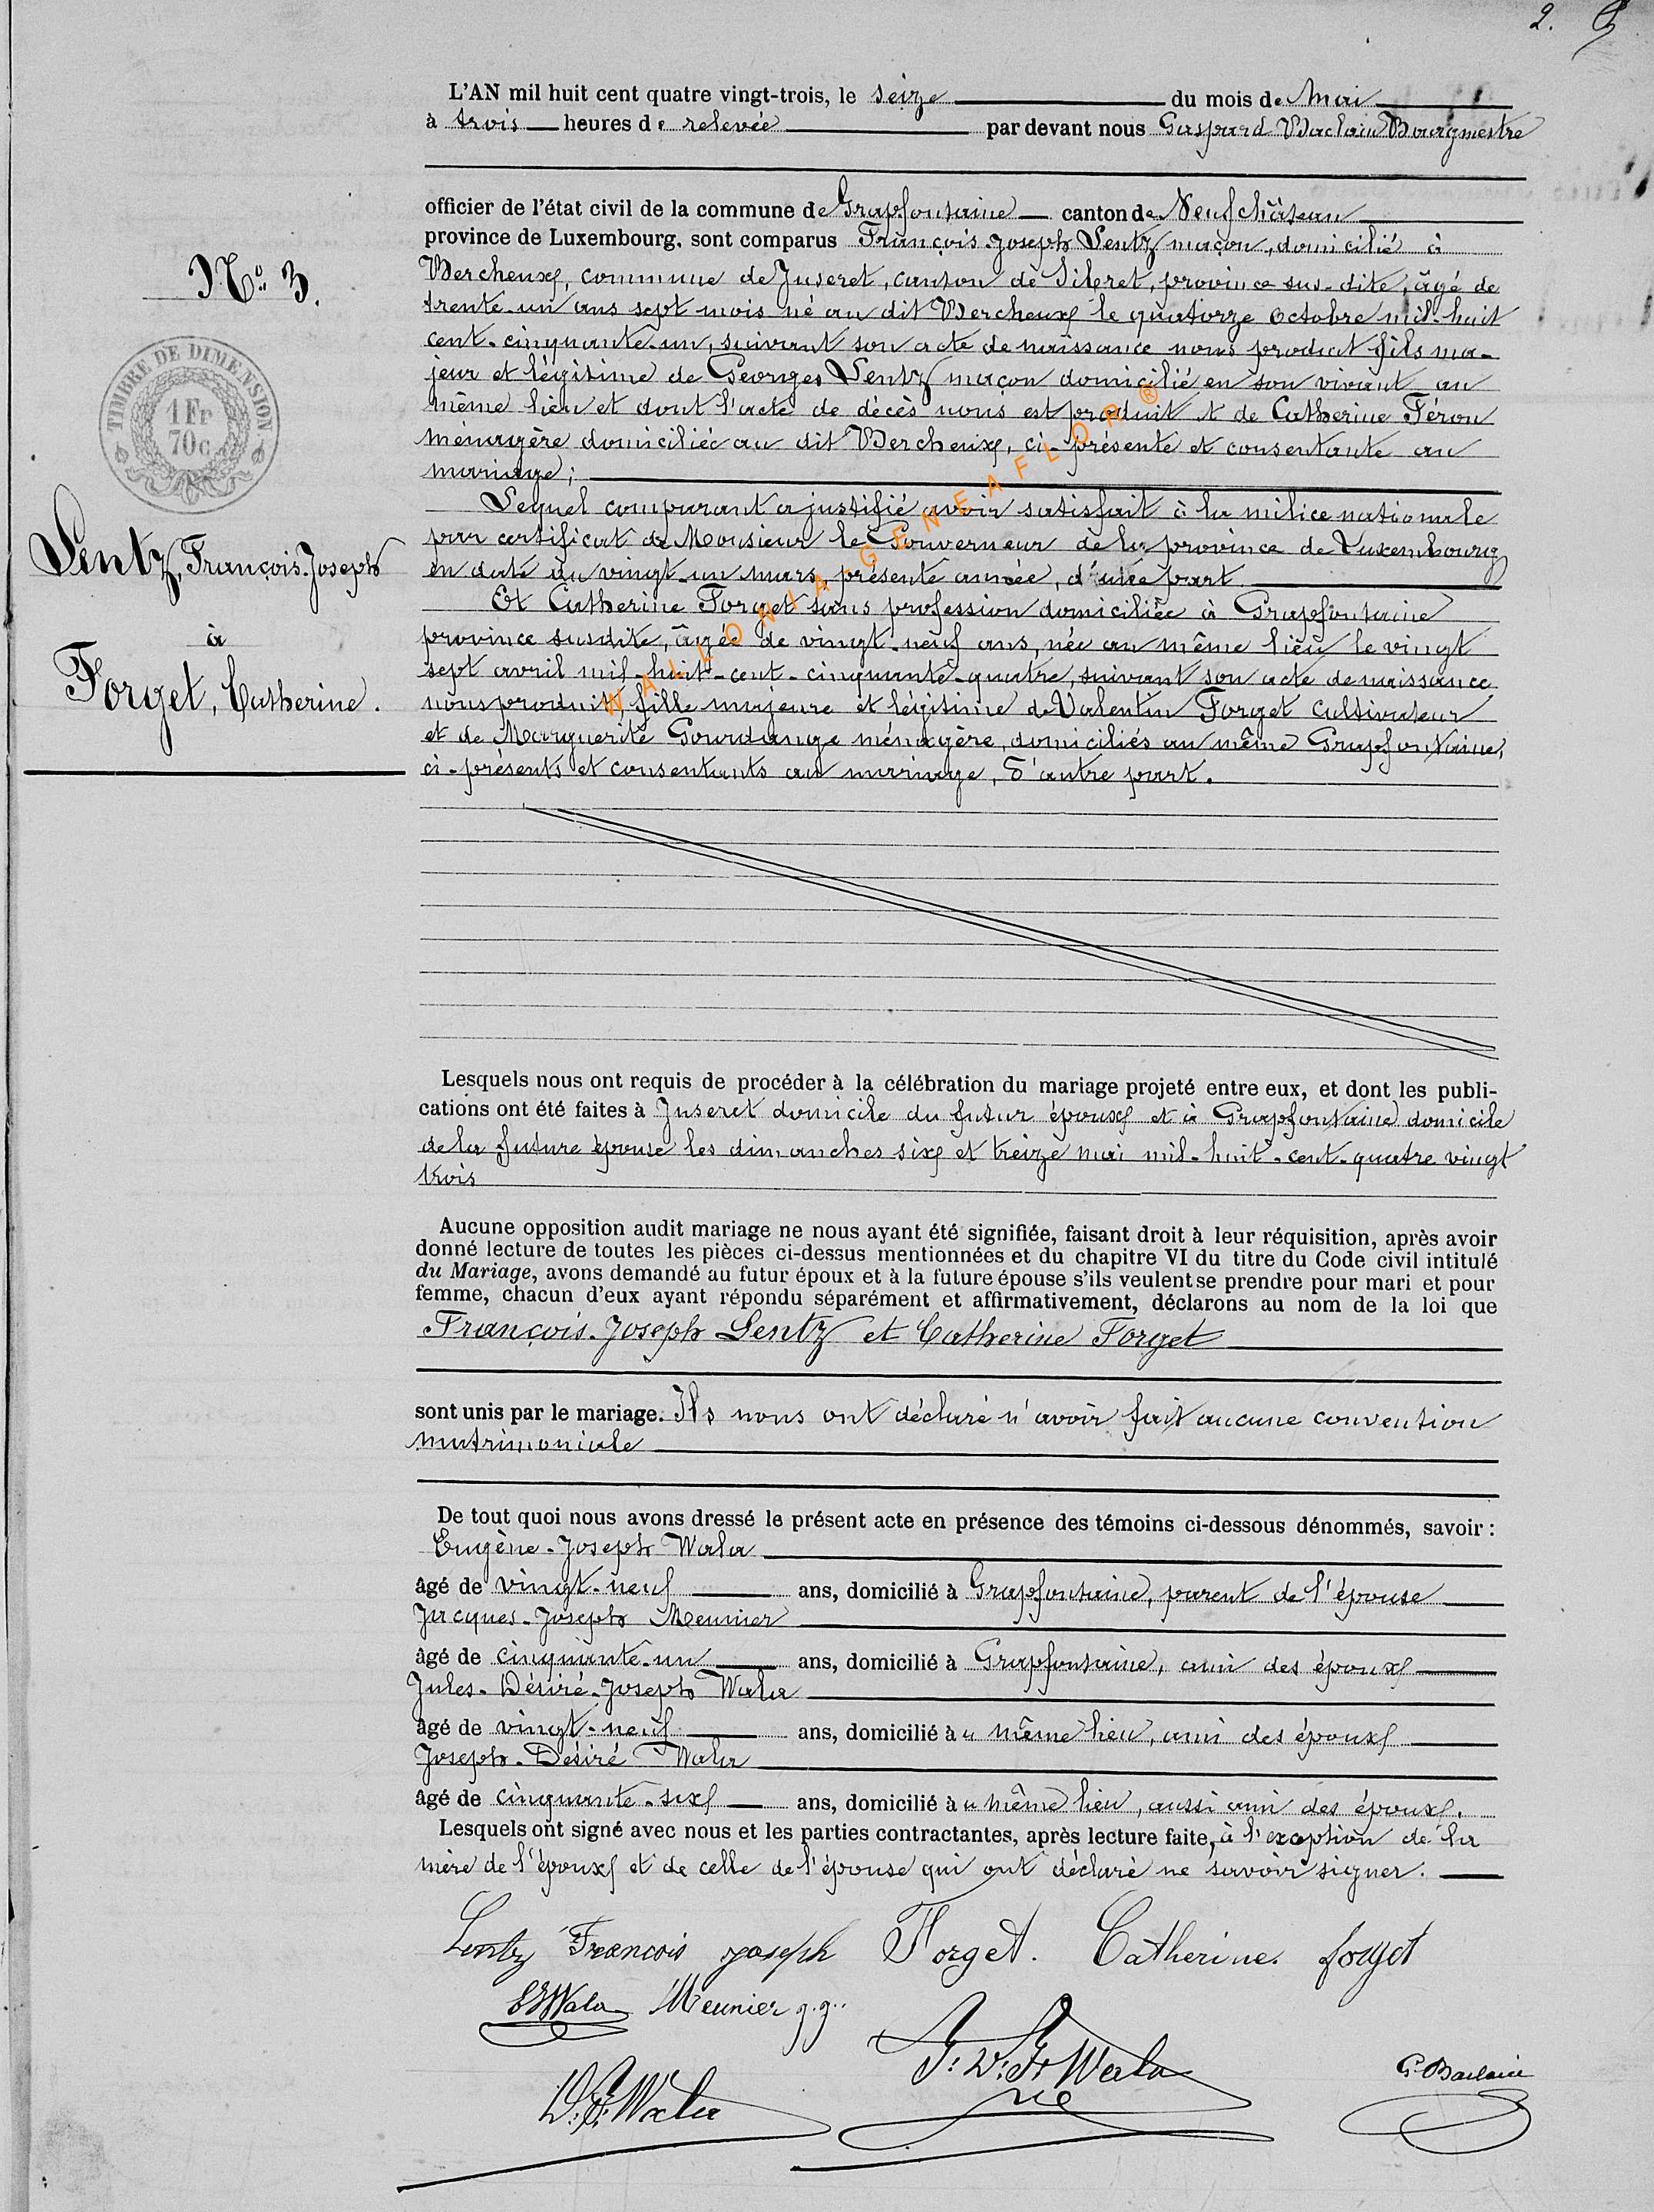 2.
L'AN mil huit cent quatre vingt-trois, le seize du mois de Mai
à trois heures de relevée par devant nous Gaspard Baclain Bourgmestre
officier de l'état civil de la commune de Grapfontaine canton de Neufchâteau
province de Luxembourg, sont comparus François-Joseph Lentz maçon, domicilié à
Bercheux, commune de Juseret, canton de Sibret, province sus-dite, âgé de
trente-un ans sept mois né au dit Bercheux le quatorze octobre mil-huit
cent-cinquante-un, suivant son acte de naissance nous produit fils ma-
jeur et légitime de Georges Lentz maçon domicilié en son vivant au
même lieu et dont l'acte de décès nous est produit et de Catherine Féron
ménagère domiciliée au dit Bercheux, ci-présente et consentante au
mariage;
Lequel comparant a justifié avoir satisfait à la milice nationale
par certificat de Monsieur le Gouverneur de la province de Luxembourg
en date du vingt-un mars, présente année, d'une part
Et Catherine Forget sans profession domiciliée à Grapfontaine
province susdite, âgée de vingt-neuf ans, née au même lieu le vingt
sept avril mil-huit-cent-cinquante-quatre, suivant son acte de naissance
nous produit, fille majeure et légitime de Valentin Forget cultivateur
et de Marguerite Gourdange ménagère, domiciliés au même Grapfontaine,
ci-présents et consentants au mariage, d'autre part.
N° 3.
TIMBRE DE DIMENSION
1 Fr
70c
Lentz, François-Joseph
à
Forget, Catherine.
WALLONIA-GENEAFLOR ®
Lesquels nous ont requis de procéder à la célébration du mariage projeté entre eux, et dont les publi-
cations ont été faites à Juseret domicile du futur époux et à Grapfontaine domicile
de la future épouse les dimanches six et treize mai mil-huit-cent-quatre vingt
trois
Aucune opposition audit mariage ne nous ayant été signifiée, faisant droit à leur réquisition, après avoir
donné lecture de toutes les pièces ci-dessus mentionnées et du chapitre VI du titre du Code civil intitulé
du Mariage, avons demandé au futur époux et à la future épouse s'ils veulent se prendre pour mari et pour
femme, chacun d'eux ayant répondu séparément et affirmativement, déclarons au nom de la loi que
François-Joseph Lentz et Catherine Forget
sont unis par le mariage. Ils nous ont déclaré n'avoir fait aucune convention
matrimoniale
De tout quoi nous avons dressé le présent acte en présence des témoins ci-dessous dénommés, savoir :
Eugène-Joseph Wala
âgé de vingt-neuf ans, domicilié à Grapfontaine, parent de l'épouse
Jacques-Joseph Meunier
âgé de cinquante-un ans, domicilié à Grapfontaine, ami des époux
Jules-Désiré-Joseph Wala
âgé de vingt-neuf ans, domicilié à u même lieu, ami des époux
Joseph-Désiré Wala
âgé de cinquante-six ans, domicilié à u même lieu, aussi ami des époux.
Lesquels ont signé avec nous et les parties contractantes, après lecture faite, à l'exception de la
mère de l'époux et de celle de l'épouse qui ont déclaré ne savoir signer.
Lentz François joseph Forget. Catherine. forget
EJWala Meunier j.j.
J: D: J: Wala
D: J: Wala
G. Baclain